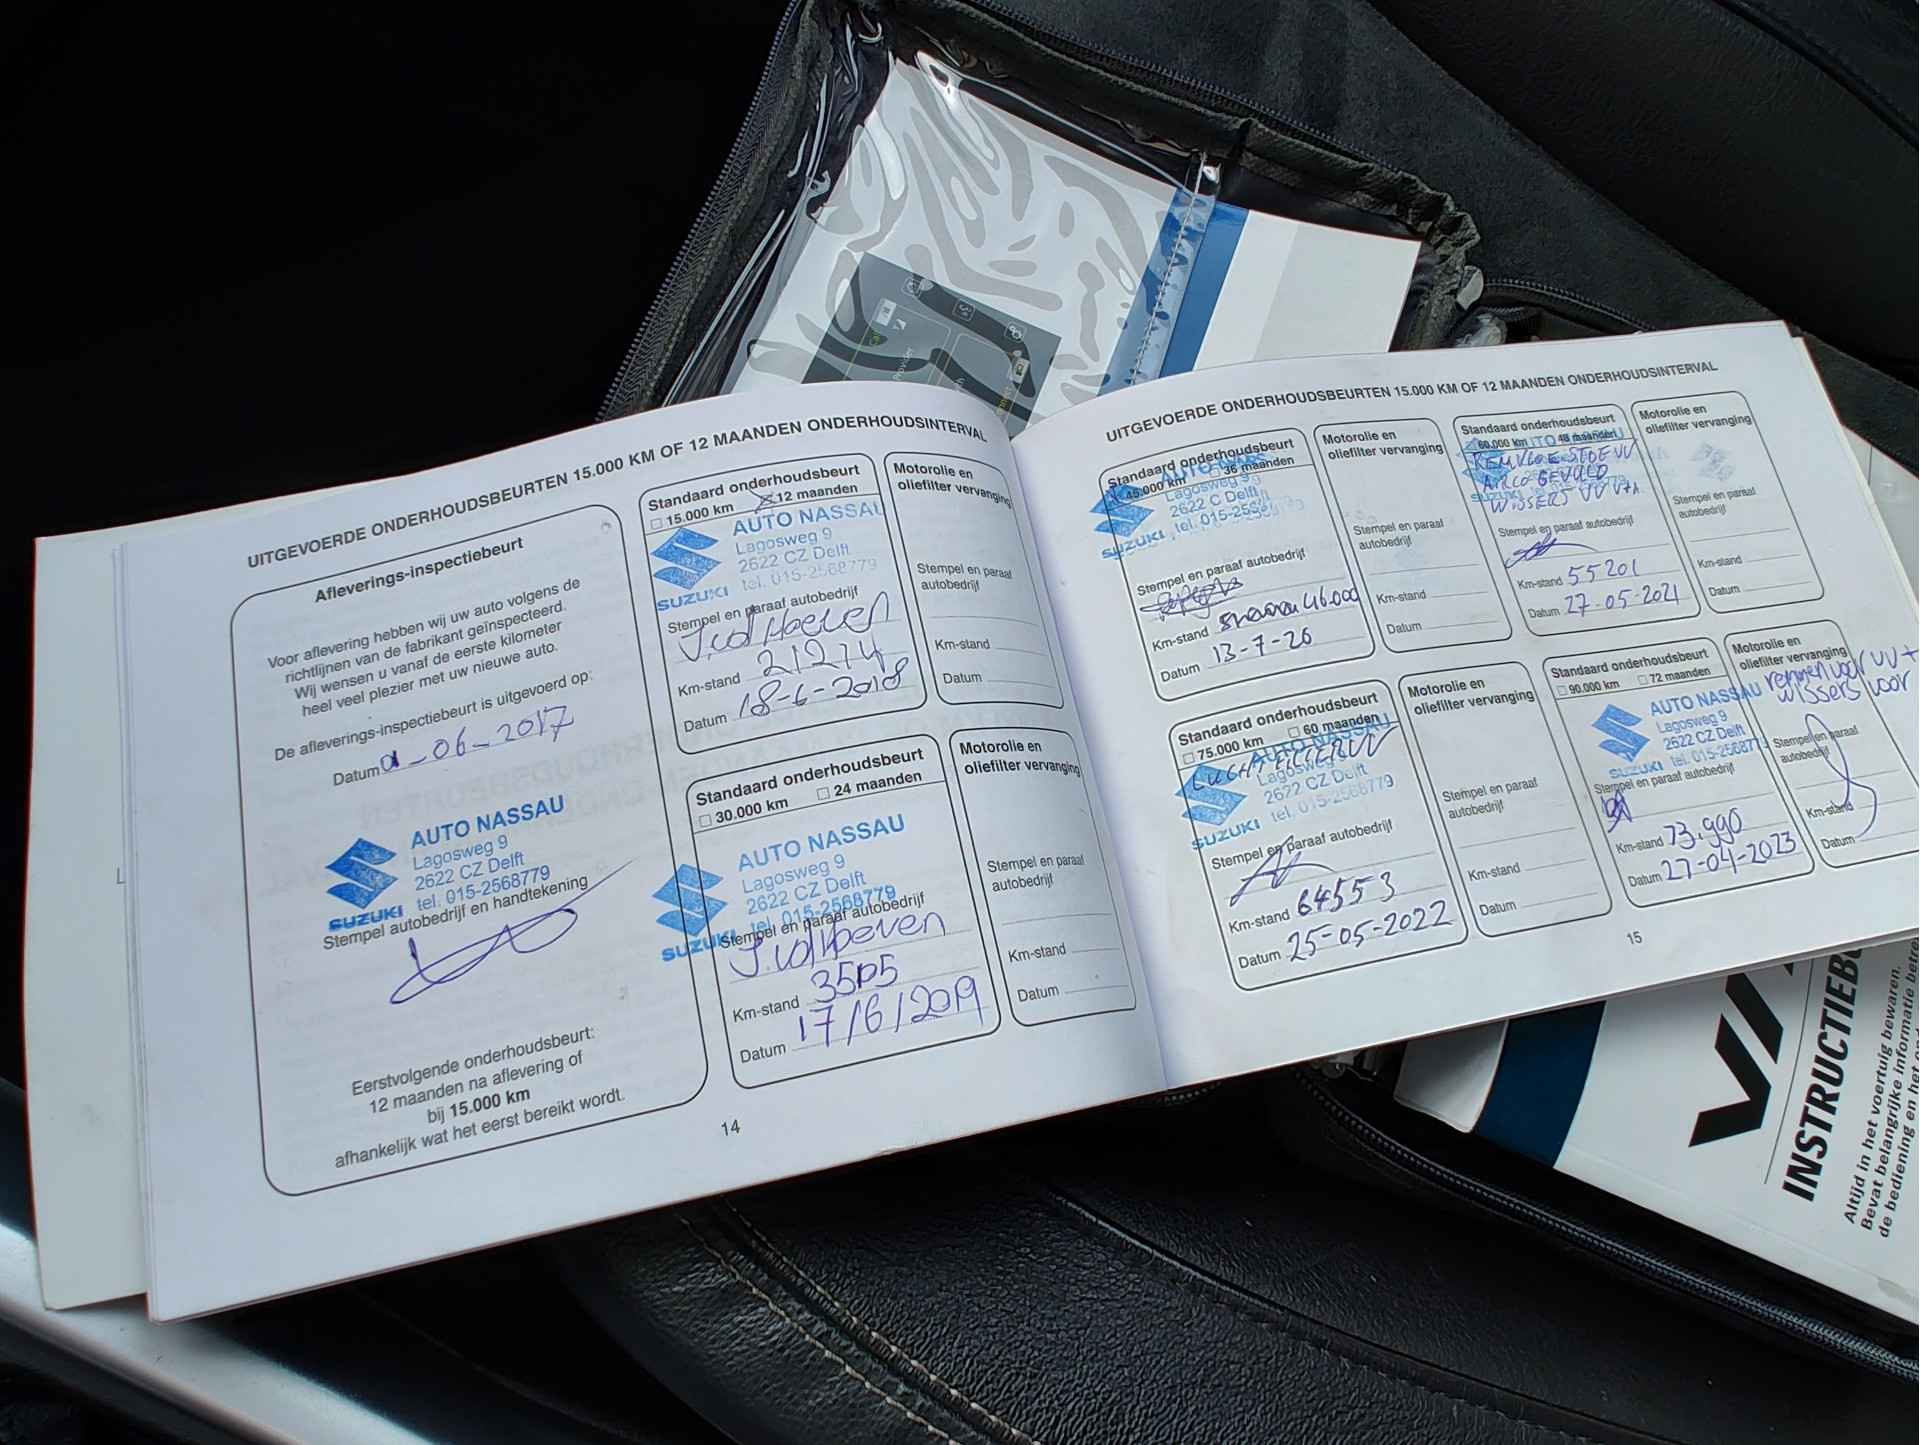 UITGEVOERDE ONDERHOUDSBEURTEN 15.000 KM OF 12 MAANDEN ONDERHOUDSINTERVAL
Afleverings-inspectiebeurt
Voor aflevering hebben wij uw auto volgens de
richtlijnen van de fabrikant geïnspecteerd.
Wij wensen u vanaf de eerste kilometer
heel veel plezier met uw nieuwe auto.
De afleverings-inspectiebeurt is uitgevoerd op:
Datum 01-06-2017
AUTO NASSAU
Lagosweg 9
2622 CZ Delft
tel. 015-2568779
SUZUKI
Stempel autobedrijf en handtekening
Eerstvolgende onderhoudsbeurt:
12 maanden na aflevering of
bij 15.000 km
afhankelijk wat het eerst bereikt wordt.
Standaard onderhoudsbeurt
15.000 km 12 maanden
AUTO NASSAU
Lagosweg 9
2622 CZ Delft
tel. 015-2568779
SUZUKI
Stempel en paraaf autobedrijf
J.vd Hoeven
Km-stand 21274
Datum 18-6-2018
Motorolie en
oliefilter vervanging
Stempel en paraaf
autobedrijf
Km-stand
Datum
Standaard onderhoudsbeurt
30.000 km 24 maanden
AUTO NASSAU
Lagosweg 9
2622 CZ Delft
tel. 015-2568779
SUZUKI
Stempel en paraaf autobedrijf
J.vd Hoeven
Km-stand
Datum 17/6/2019
Motorolie en
oliefilter vervanging
Stempel en paraaf
autobedrijf
Km-stand
Datum
14
UITGEVOERDE ONDERHOUDSBEURTEN 15.000 KM OF 12 MAANDEN ONDERHOUDSINTERVAL
Standaard onderhoudsbeurt
45.000 km 36 maanden
Lagosweg 9
2622 CZ Delft
tel. 015-2568
SUZUKI
Stempel en paraaf autobedrijf
Km-stand 46.000
Datum 13-7-20
Motorolie en
oliefilter vervanging
Stempel en paraaf
autobedrijf
Km-stand
Datum
Standaard onderhoudsbeurt
60.000 km 48 maanden
AIRCO GEVULD
WISSERS VV
Stempel en paraaf autobedrijf
Km-stand 55201
Datum 27-05-2021
Motorolie en
oliefilter vervanging
Stempel en paraaf
autobedrijf
Km-stand
Datum
Standaard onderhoudsbeurt
75.000 km 60 maanden
AUTO NASSAU
Lagosweg 9
2622 CZ Delft
tel. 015-2568779
SUZUKI
Stempel en paraaf autobedrijf
Km-stand 64553
Datum 25-05-2022
Motorolie en
oliefilter vervanging
Stempel en paraaf
autobedrijf
Km-stand
Datum
Standaard onderhoudsbeurt
90.000 km 72 maanden
AUTO NASSAU
Lagosweg 9
2622 CZ Delft
tel. 015-2568779
SUZUKI
Stempel en paraaf autobedrijf
Km-stand 73.990
Datum 27-04-2023
Motorolie en
oliefilter vervanging
remmen voor VV +
wissers voor
Stempel en paraaf
autobedrijf
Km-stand
Datum
15
Altijd in het voertuig bewaren.
Bevat belangrijke informatie
de bediening en het